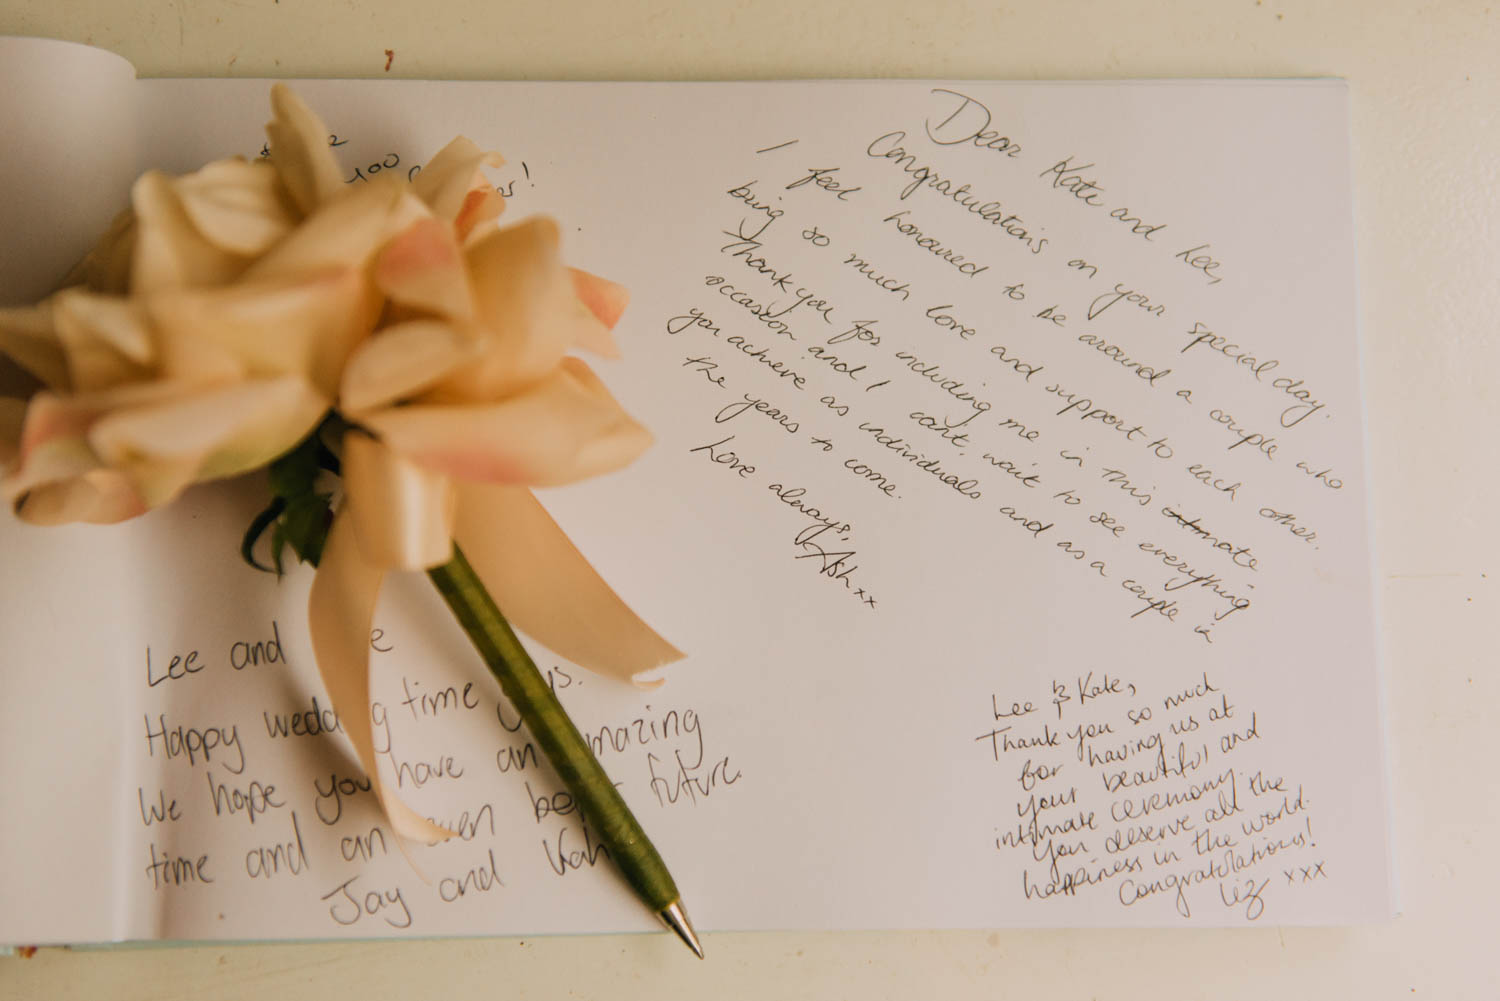 100
Lee and
Happy time
We hope you have an amazing
time and an even future.
Jay and
Dear Kate and Lee,
Congratulations on your special day.
I feel honoured to be around a couple who
bring so much love and support to each other.
Thank you for including me in this intimate
occasion and I cant wait to see everything
you achieve as individuals and as a couple in
the years to come.
Love always,
Ash xx
Lee & Kate,
Thank you so much
for having us at
your beautiful and
intimate ceremony.
You deserve all the
happiness in the world.
Congratulations!
Liz xxx